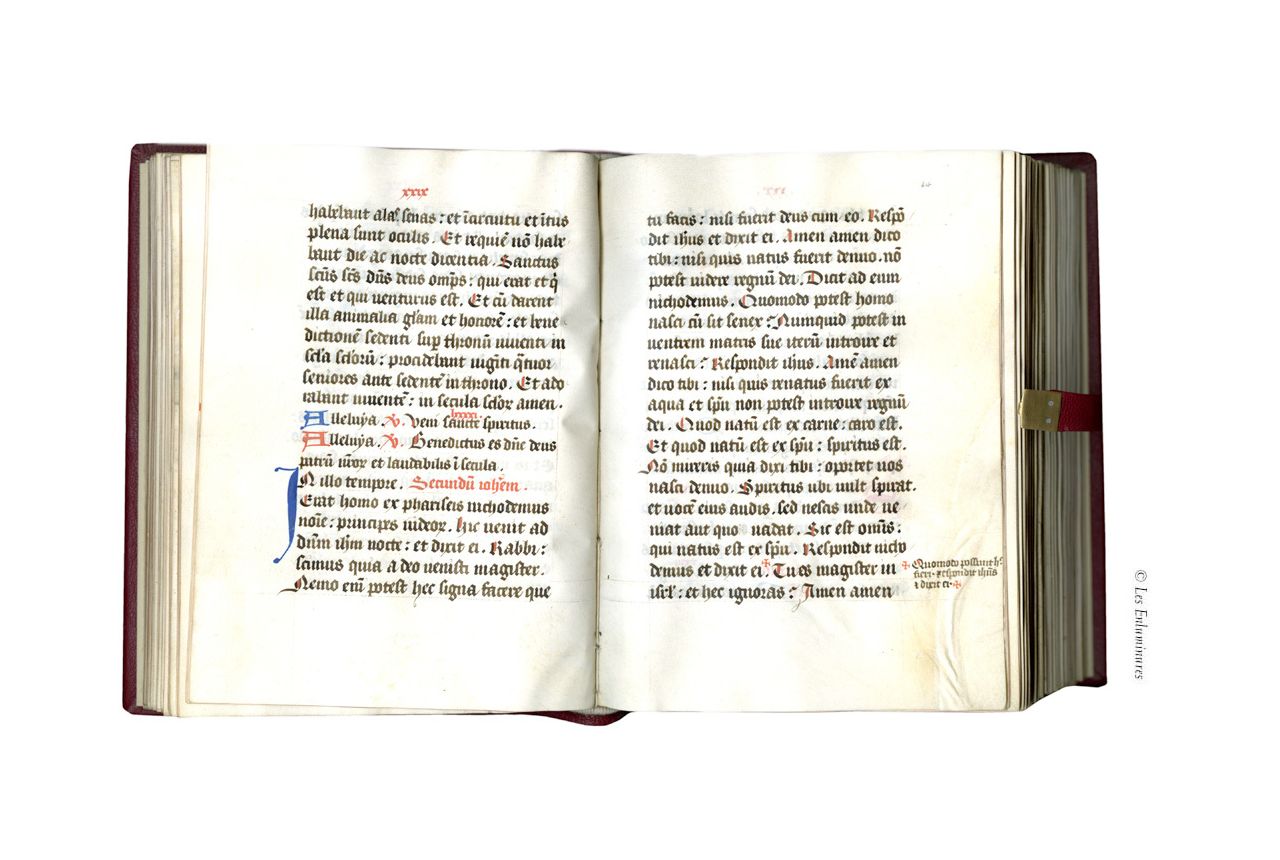 xxix
habebant alas senas : et ĩ circuitu et ĩtus
plena sunt oculis . Et requiẽ nõ habe
bant die ac nocte dicentia . Sanctus
scũs scẽs dñs deus omps : qui erat et q̇
est et qui uenturus est . Et cũ darent
illa animalia glãm et honorẽ : et bene
dictionẽ sedenti sup thronũ uiuenti in
scla sclorũ : procidebant uiginti q̃tuor
seniores ante sedentẽ in throno . Et ado
rabant uiuentẽ : in secula sclor amen .
lxxxi.
Alleluya . V . Veni sancte spiritus .
Alleluya . V . Benedictus es dñe deus
patrũ nr̃or et laudabilis ĩ secula .
IN illo tempore . Secundũ iohẽm .
Erat homo ex phariseis nichodemus
noĩe : princeps iudeor . hic uenit ad
dñm ihm nocte : et dixit ei . Rabbi :
scimus quia a deo uenisti magister .
Nemo enĩ potest hec signa facere que
xxx
tu facis : nisi fuerit deus cum eo . Respõ
dit ihus et dixit ei . Amen amen dico
tibi : nisi quis natus fuerit denuo . nõ
potest uidere regnũ dei . Dicit ad eum
nichodemus . Quomodo potest homo
nasci cũ sit senex : Numquid potest in
uentrem matris sue iterũ introire et
renasci : Respondit ihus . Amẽ amen
dico tibi : nisi quis renatus fuerit ex
aqua et spũ non potest introire regnũ
dei . Quod natũ est ex carne : caro est .
Et quod natũ est ex spũ : spiritus est .
Nõ mireris quia dixi tibi : oportet uos
nasci denuo . Spiritus ubi uult spirat .
et uocẽ eius audis . sed nescis unde ue
niat aut quo uadat . Sic est omĩs :
qui natus est ex spũ . Respondit nicho
demus et dixit ei . ✠ Tu es magister in
isrl : et hec ignoras : Amen amen
✠ Quomodo possunt h̾
fieri . respondit ihus
⁊ dixit ei . ✠
© Les Enluminures